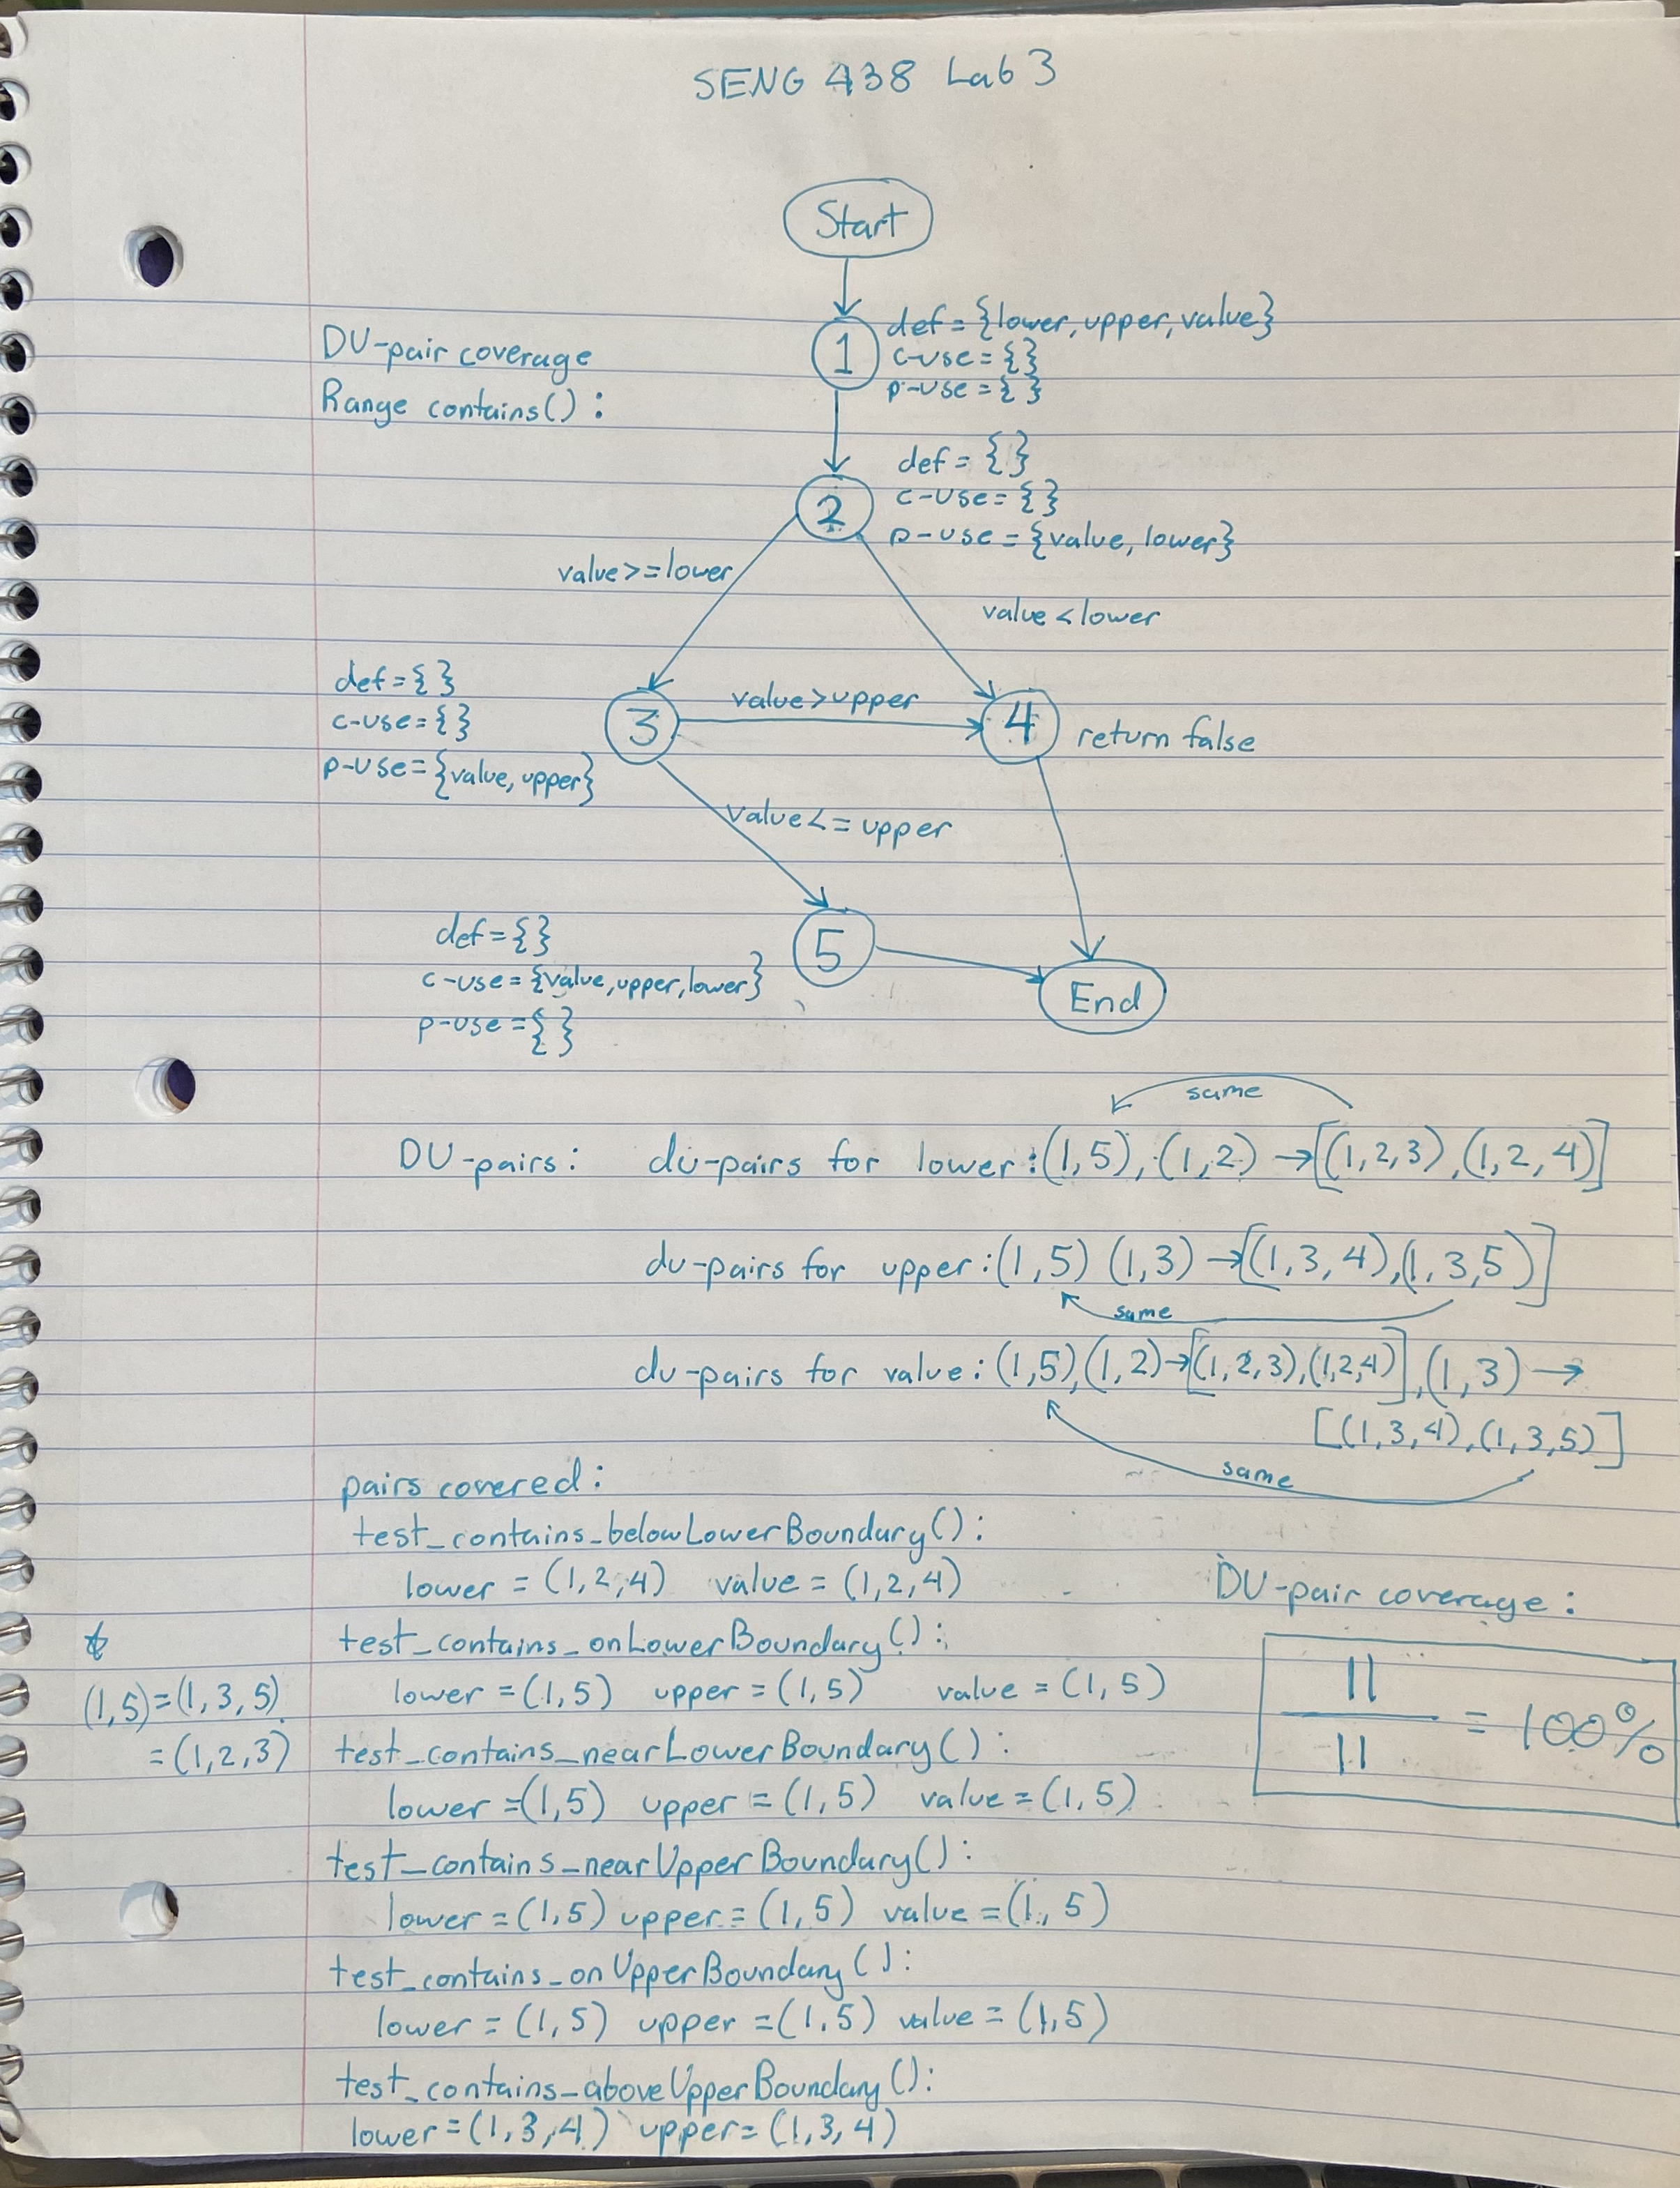 SENG 438 Lab 3
Start
DU-pair coverage
Range contains():
1
def = {lower, upper, value}
c-use = {}
p-use = { }
2
def = { }
c-use = { }
p-use = {value, lower}
value>=lower
value < lower
def = { }
c-use = { }
p-use = {value, upper}
3
value>upper
4
return false
value <= upper
def = { }
c-use = {value, upper, lower}
p-use = { }
5
End
same
DU-pairs: du-pairs for lower: (1,5), (1,2) → [(1,2,3), (1,2,4)]
du-pairs for upper: (1,5) (1,3) → [(1,3,4), (1,3,5)]
same
du-pairs for value: (1,5), (1,2) → [(1,2,3), (1,2,4)], (1,3) →
[(1,3,4), (1,3,5)]
same
pairs covered:
test_contains_belowLowerBoundary():
lower = (1,2,4) value = (1,2,4)
test_contains_onLowerBoundary():
lower = (1,5) upper = (1,5) value = (1,5)
test_contains_nearLowerBoundary():
lower = (1,5) upper = (1,5) value = (1,5)
test_contains_nearUpperBoundary():
lower = (1,5) upper = (1,5) value = (1,5)
test_contains_onUpperBoundary():
lower = (1,5) upper = (1,5) value = (1,5)
test_contains_aboveUpperBoundary():
lower = (1,3,4) upper = (1,3,4)
*
(1,5) = (1,3,5)
= (1,2,3)
DU-pair coverage:
11
11
= 100%